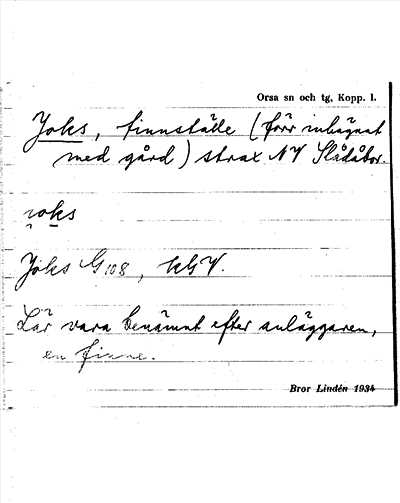 Orsa sn och tg, Kopp. l.
Joks, finnställe (förr inhägnat
med gård) strax NV Slådåbor.
joks
Joks G 108, kGV.
Lär vara benämnt efter anläggaren,
en finne.
Bror Lindén 1934